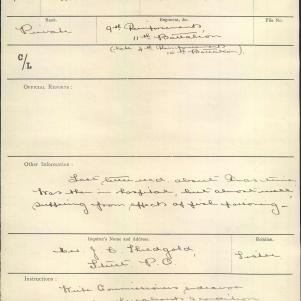 Rank. Regiment, &c. File No.
Private 9th Reinforcements
11th Battalion
(late 9th Reinforcements
Battalion)
C/L
OFFICIAL REPORTS:
Other Information:
Last heard about Xmas time.
Was then in hospital, but almost well,
suffering from effects of fish poisoning—
Inquirer's Name and Address. Relation.
J. C. Thedgold, Sister
Street P.O.
Instructions:
Write Commissioners